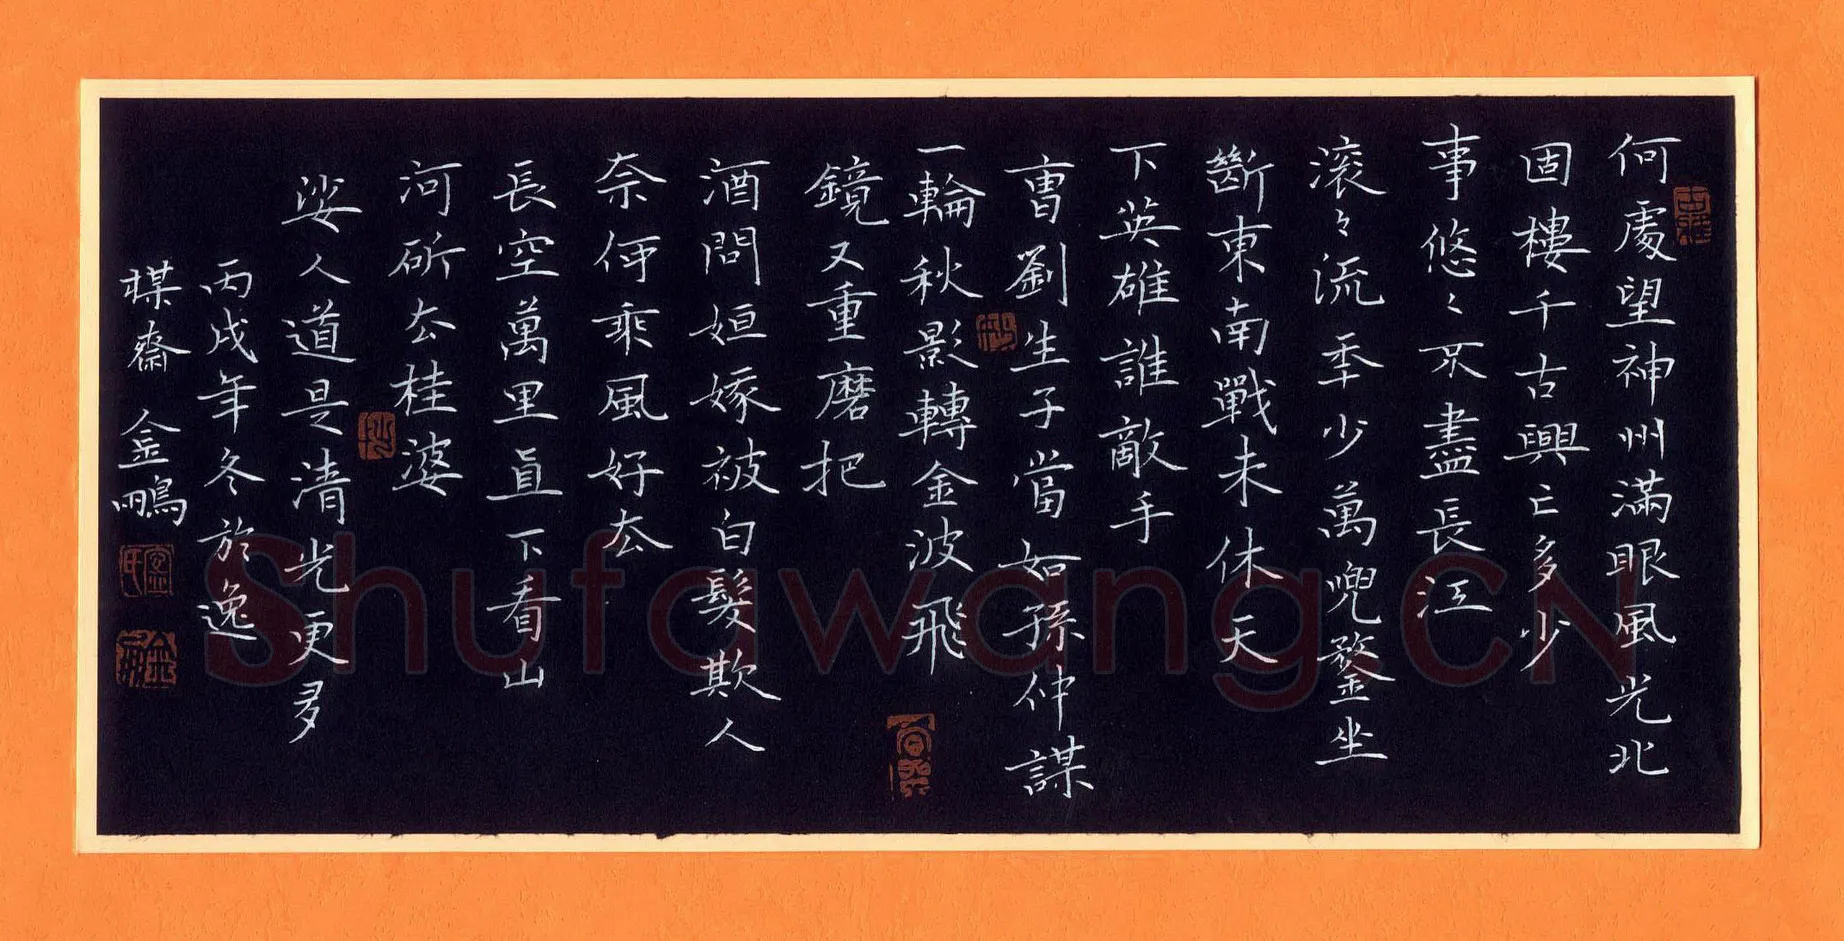 何處望神州滿眼風光北
固樓千古興亡多少
事悠々不盡長江
滚々流年少萬兜鍪坐
斷東南戰未休天
下英雄誰敵手
曹劉生子當如孫仲謀
一輪秋影轉金波飛
鏡又重磨把
酒問姮嫁被白髮欺人
奈何乘風好去
長空萬里直下看山
河斫去桂婆
娑人道是清光更多
丙戌年冬於逸
楳齋 金鵬
Shufawang.CN